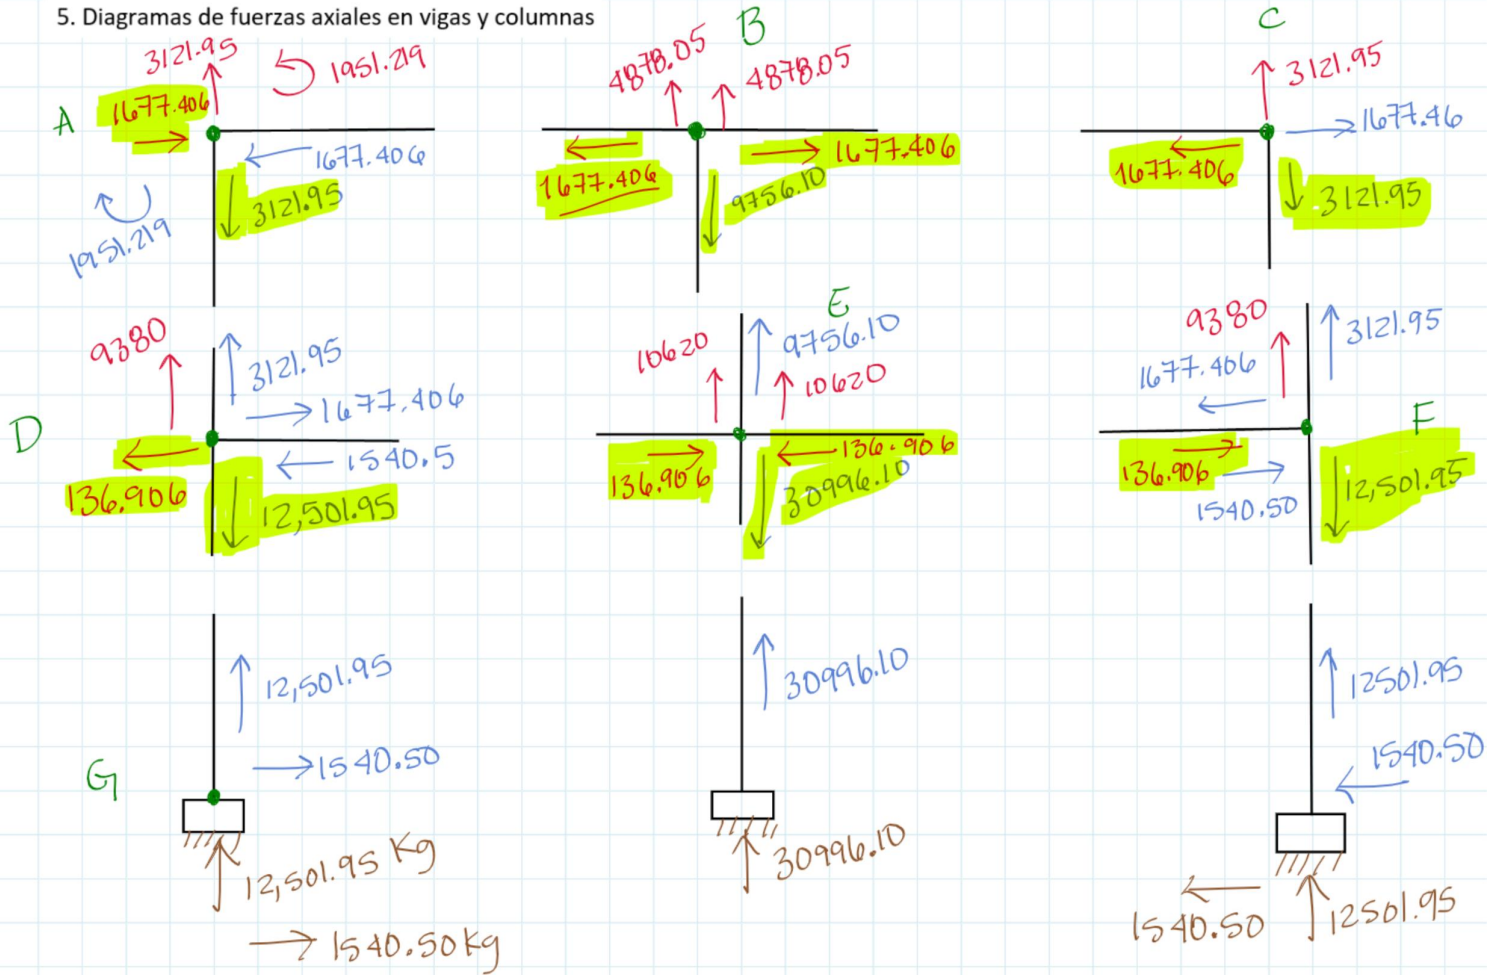 5. Diagramas de fuerzas axiales en vigas y columnas
A
3121.95
1951.219
1677.406
1677.406
3121.95
1951.219
B
4878.05
4878.05
1677.406
1677.406
9756.10
C
3121.95
1677.46
1677.406
3121.95
D
9380
3121.95
1677.406
1540.5
136.906
12,501.95
E
10620
9756.10
10620
136.906
136.906
30996.10
F
9380
3121.95
1677.406
136.906
1540.50
12,501.95
G
12,501.95
1540.50
12,501.95 Kg
1540.50 Kg
30996.10
30996.10
12501.95
1540.50
1540.50
12501.95